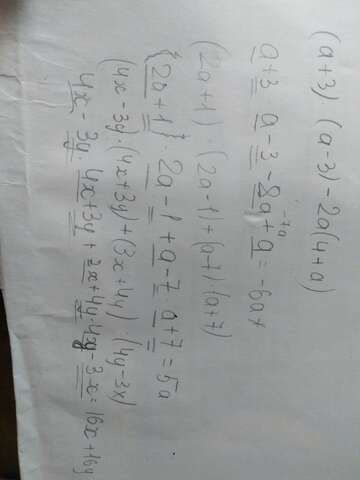 (a+3) (a-3) - 2a(4+a)
-7a
a+3 · a-3 - 8a + a = -6a
(2a+1) · (2a-1) + (a-7) · (a+7)
{2a+1} · 2a-1 + a-7 · a+7 = 5a
(4x-3y) · (4x+3y) + (3x+4y) · (4y-3x)
4x - 3y · 4x+3y + 3x+4y · 4y - 3x = 16x + 16y